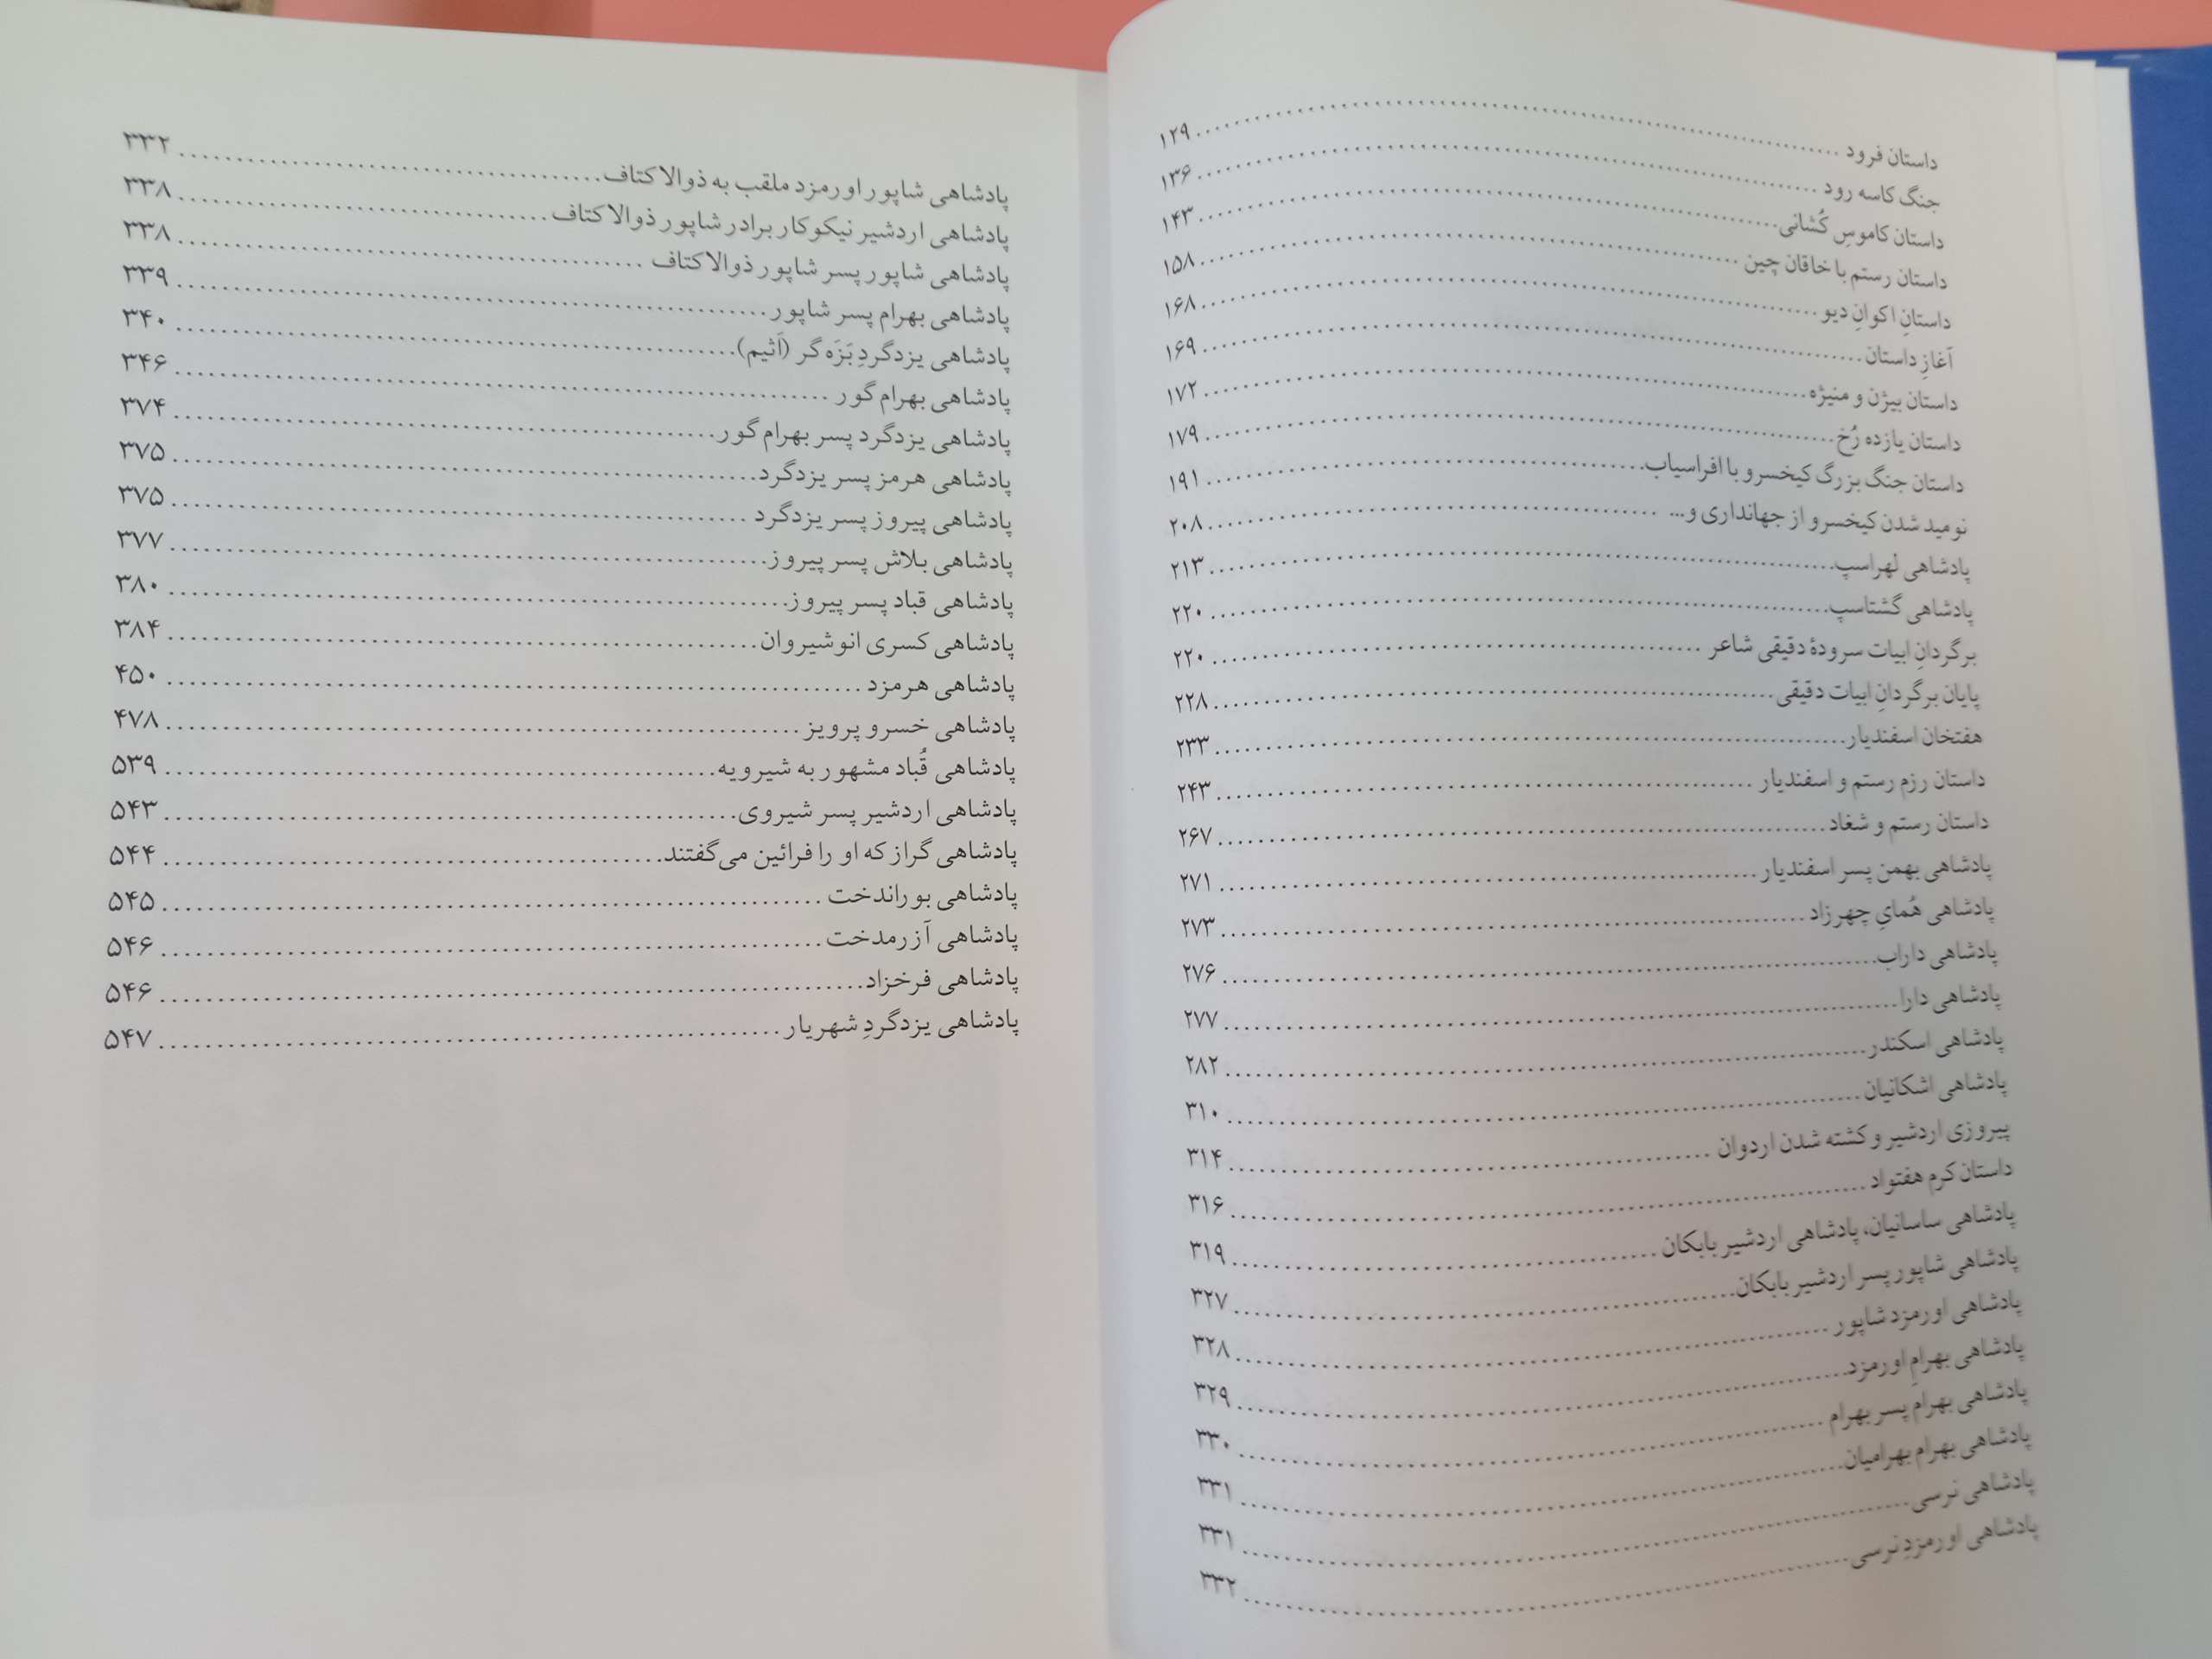 داستان فرود ........ ۱۲۹
جنگ کاسه رود ........ ۱۳۶
داستان کاموسِ کُشانی ........ ۱۴۳
داستان رستم با خاقان چین ........ ۱۵۸
داستانِ اکوانِ دیو ........ ۱۶۸
آغازِ داستان ........ ۱۶۹
داستان بیژن و منیژه ........ ۱۷۲
داستان یازده رُخ ........ ۱۷۹
داستان جنگ بزرگ کیخسرو با افراسیاب ........ ۱۹۱
نومید شدن کیخسرو از جهانداری و... ........ ۲۰۸
پادشاهی لهراسپ ........ ۲۱۳
پادشاهی گشتاسپ ........ ۲۲۰
برگردانِ ابیات سرودهٔ دقیقی شاعر ........ ۲۲۰
پایان برگردانِ ابیات دقیقی ........ ۲۲۸
هفتخان اسفندیار ........ ۲۳۳
داستان رزم رستم و اسفندیار ........ ۲۴۳
داستان رستم و شغاد ........ ۲۶۷
پادشاهی بهمن پسر اسفندیار ........ ۲۷۱
پادشاهی هُمایِ چهرزاد ........ ۲۷۳
پادشاهی داراب ........ ۲۷۶
پادشاهی دارا ........ ۲۷۷
پادشاهی اسکندر ........ ۲۸۲
پادشاهی اشکانیان ........ ۳۱۰
پیروزی اردشیر و کشته شدن اردوان ........ ۳۱۴
داستان کرم هفتواد ........ ۳۱۶
پادشاهی ساسانیان، پادشاهی اردشیر بابکان ........ ۳۱۹
پادشاهی شاپور پسر اردشیر بابکان ........ ۳۲۷
پادشاهی اورمزد شاپور ........ ۳۲۸
پادشاهی بهرامِ اورمزد ........ ۳۲۹
پادشاهی بهرام پسر بهرام ........ ۳۳۰
پادشاهی بهرام بهرامیان ........ ۳۳۱
پادشاهی نرسی ........ ۳۳۱
پادشاهی اورمزدِ نرسی ........ ۳۳۲
پادشاهی شاپور اورمزد ملقب به ذوالاکتاف ........ ۳۳۲
پادشاهی اردشیر نیکوکار برادر شاپور ذوالاکتاف ........ ۳۳۸
پادشاهی شاپور پسر شاپور ذوالاکتاف ........ ۳۳۸
پادشاهی بهرام پسر شاپور ........ ۳۳۹
پادشاهی یزدگردِ بَزَه‌گر (اَثیم) ........ ۳۴۰
پادشاهی بهرام گور ........ ۳۴۶
پادشاهی یزدگرد پسر بهرام گور ........ ۳۷۴
پادشاهی هرمز پسر یزدگرد ........ ۳۷۵
پادشاهی پیروز پسر یزدگرد ........ ۳۷۵
پادشاهی بلاش پسر پیروز ........ ۳۷۷
پادشاهی قباد پسر پیروز ........ ۳۸۰
پادشاهی کسری انوشیروان ........ ۳۸۴
پادشاهی هرمزد ........ ۴۵۰
پادشاهی خسرو پرویز ........ ۴۷۸
پادشاهی قُباد مشهور به شیرویه ........ ۵۳۹
پادشاهی اردشیر پسر شیروی ........ ۵۴۳
پادشاهی گراز که او را فرائین می‌گفتند ........ ۵۴۴
پادشاهی بوراندخت ........ ۵۴۵
پادشاهی آزرمدخت ........ ۵۴۶
پادشاهی فرخزاد ........ ۵۴۶
پادشاهی یزدگردِ شهریار ........ ۵۴۷